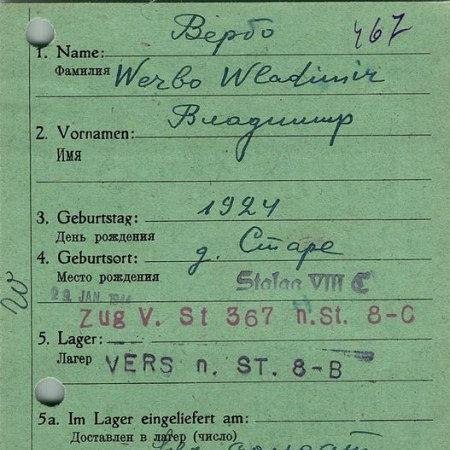 Вербо
467
1. Name:
Фамилия Werbo Wladimir
Владимир
2. Vornamen:
Имя
3. Geburtstag: 1924
День рождения
4. Geburtsort: д. Старе
Место рождения
Stalag VIII C
JAN
W
Zug V. St 367 n. St. 8-C
5. Lager:
Лагер VERS n. ST. 8-B
5a. Im Lager eingeliefert am:
Доставлен в лагер (число)